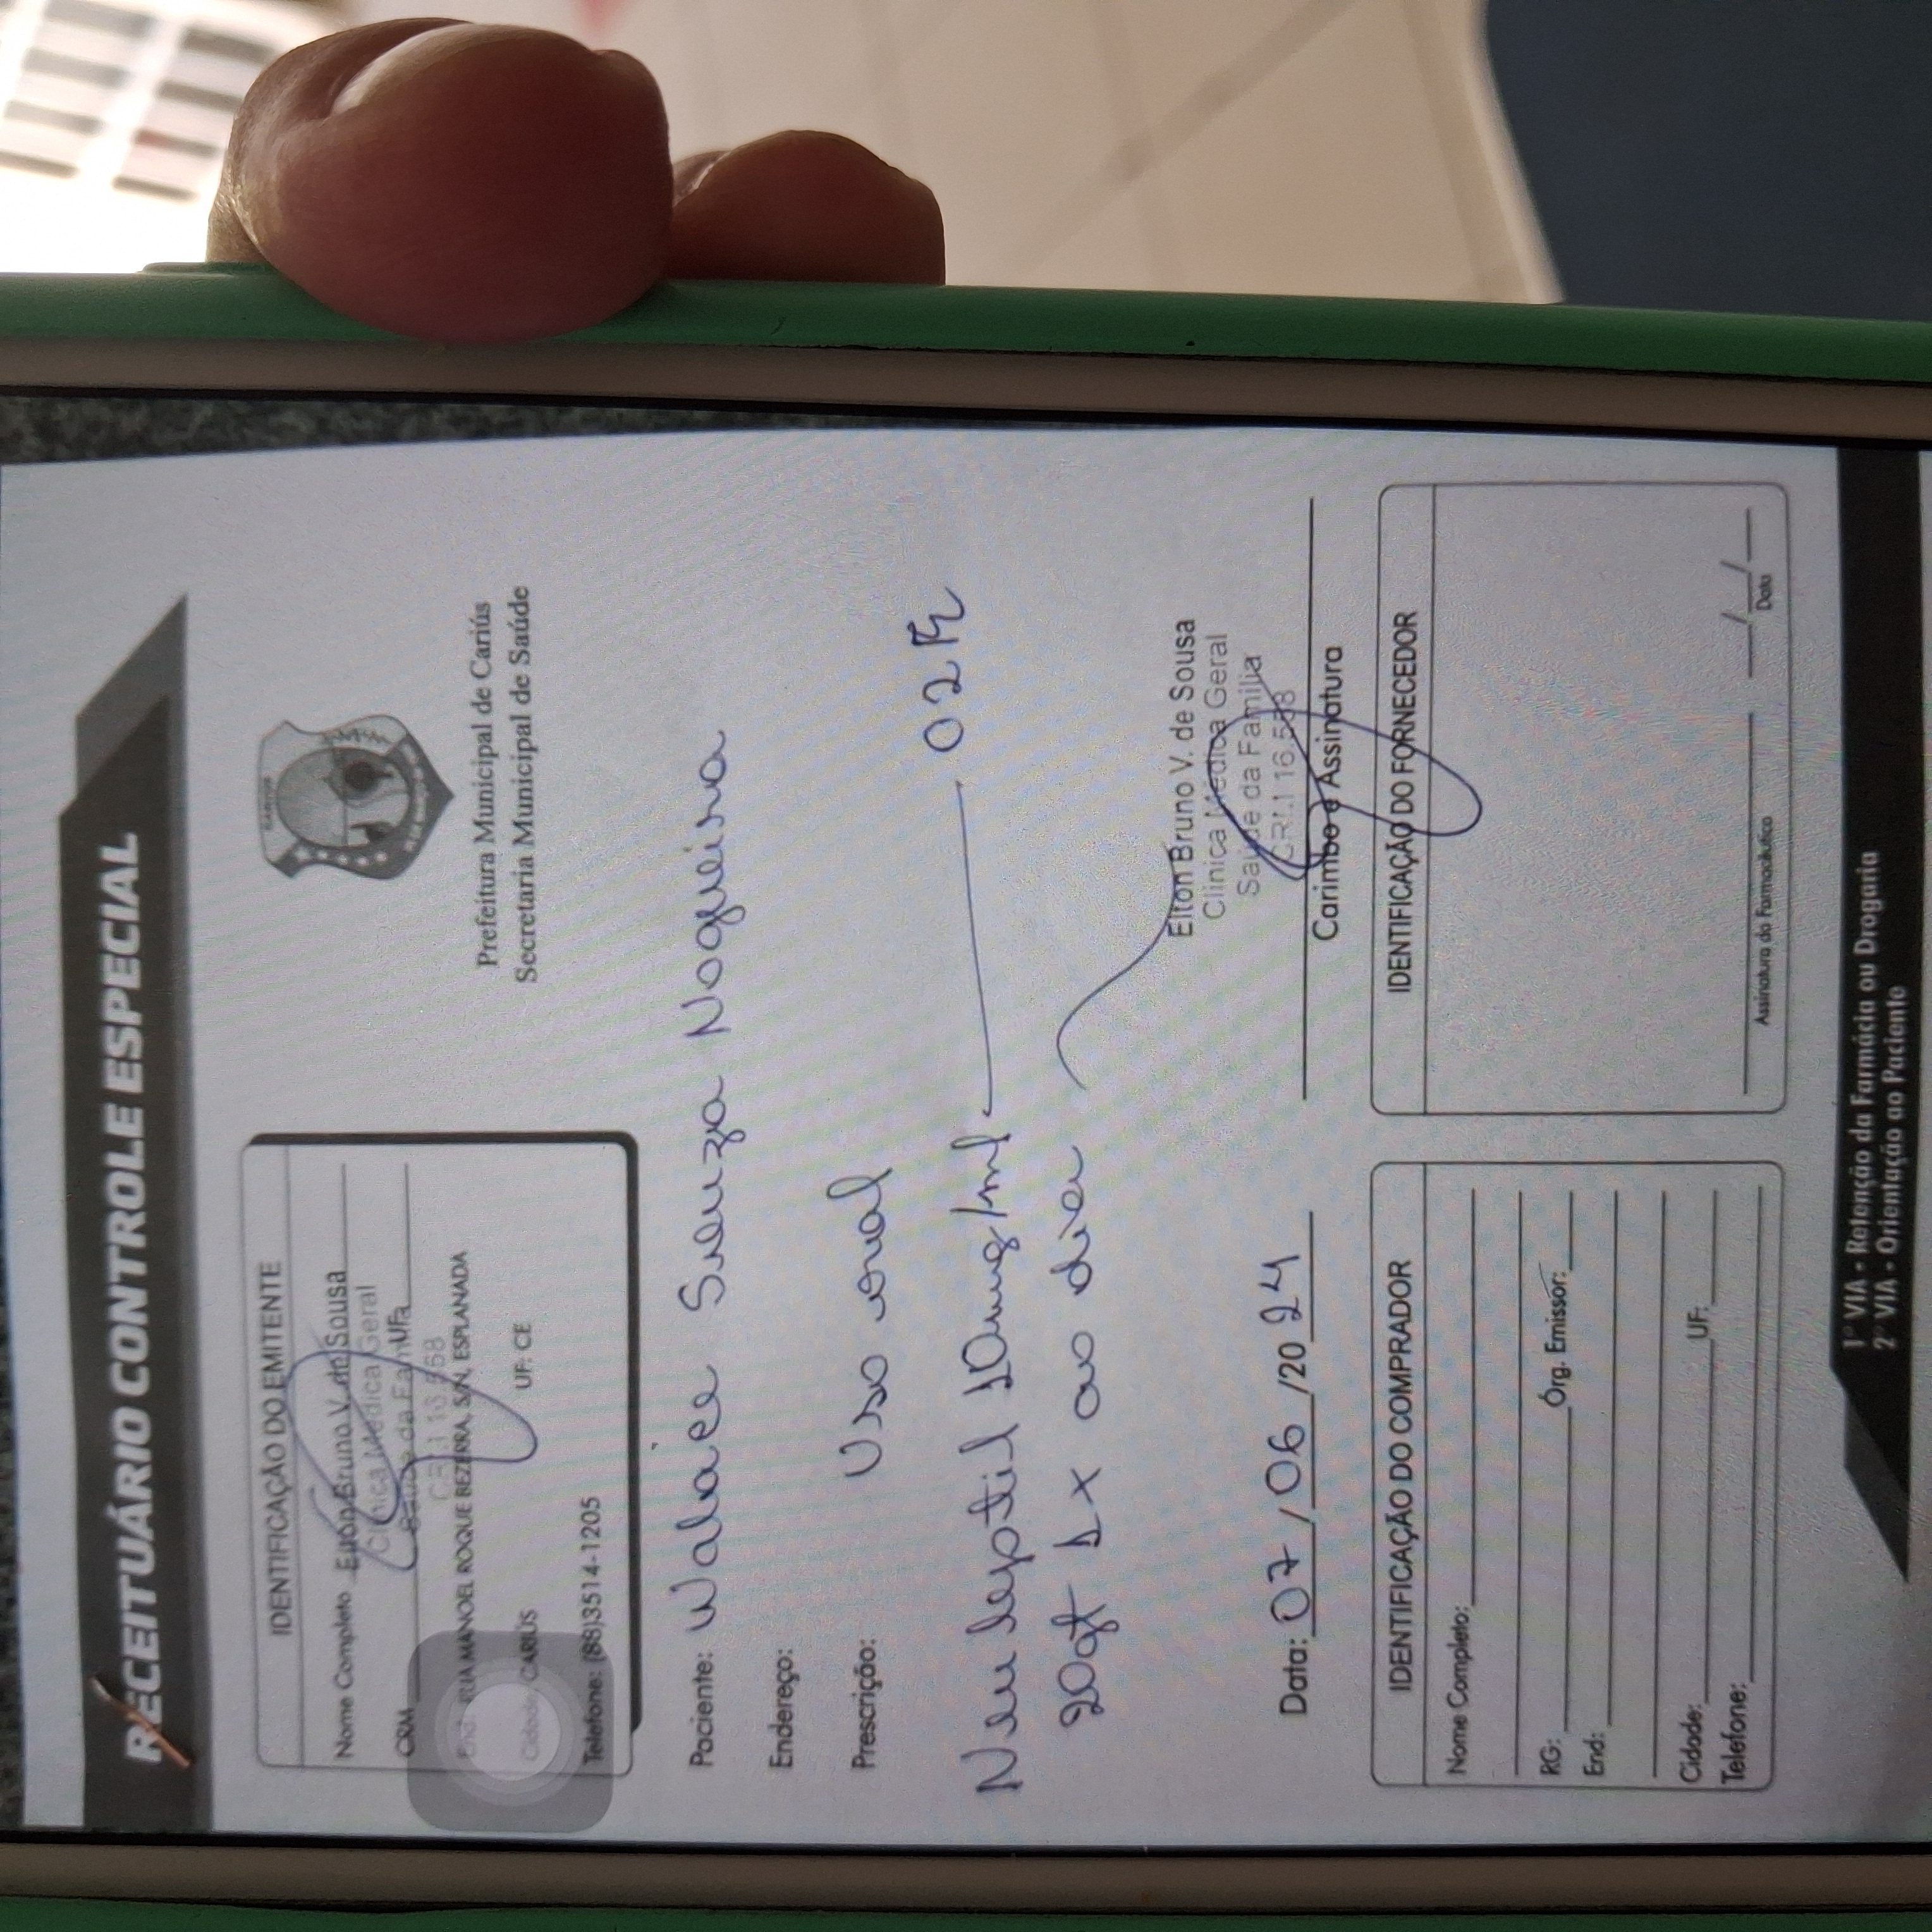 RECEITUÁRIO CONTROLE ESPECIAL
IDENTIFICAÇÃO DO EMITENTE
Nome Completo Elton Bruno V. de Sousa
Clinica Médica Geral
CRM Saúde da Familia UF
CRM 16.558
End: RUA MANOEL ROQUE BEZERRA, S/N, ESPLANADA
Cidade: CARIÚS UF: CE
Telefone: (88)3514-1205
CARIÚS
Prefeitura Municipal de Cariús
Secretaria Municipal de Saúde
Paciente: Walace Souza Nogueira
Endereço:
Prescrição: Uso oral
Neuleptil 10mg/ml 02
20gt 1x ao dia
Elton Bruno V. de Sousa
Clinica Médica Geral
Saúde da Familia
CRM 16.558
Data: 07/06/2024
Carimbo e Assinatura
IDENTIFICAÇÃO DO COMPRADOR
Nome Completo:
RG: Órg. Emissor:
End:
Cidade: UF:
Telefone:
IDENTIFICAÇÃO DO FORNECEDOR
Assinatura do Farmacêutico
/ /
Data
1ª VIA - Retenção da Farmácia ou Drogaria
2ª VIA - Orientação ao Paciente